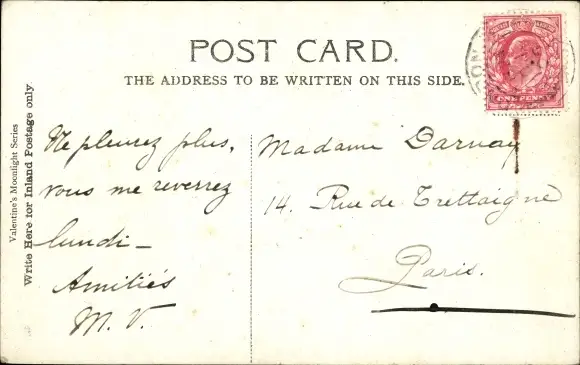 POST CARD.
THE ADDRESS TO BE WRITTEN ON THIS SIDE.
Valentine's Moonlight Series
Write Here for Inland Postage only.
Ne pleurez plus,
vous me reverrez
lundi —
Amitiés
M. V.
Madame Darnay
14. Rue de Trettaigne
Paris.
ONE PENNY